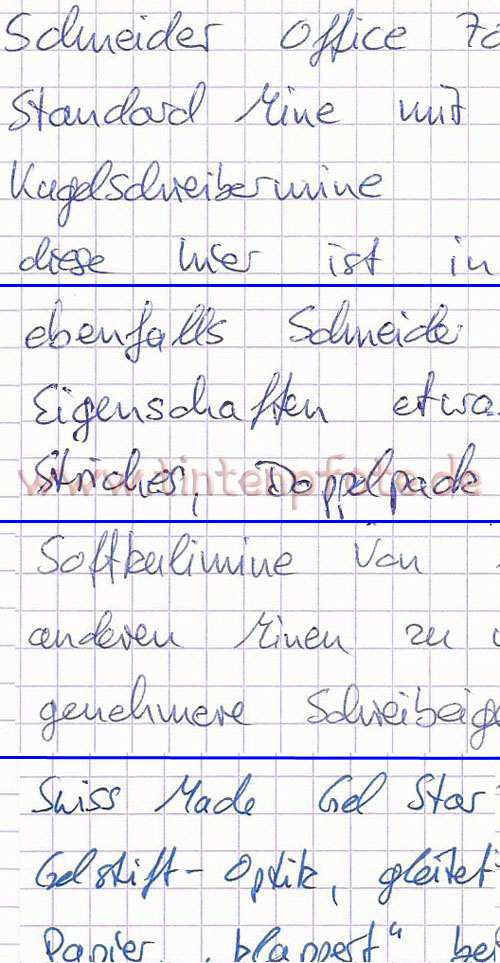 Schneider Office 70
Standard Mine mit
Kugelschreibermine
diese hier ist in
ebenfalls Schneide
Eigenschaften etwa
Striches, Doppelpack
www.tintenpfote.de
Softkulimine von
anderen Minen zu
genehmere Schreibeige
Swiss Made Gel Star
Gelstift-Optik, gleitet
Papier, „klappert“ bei